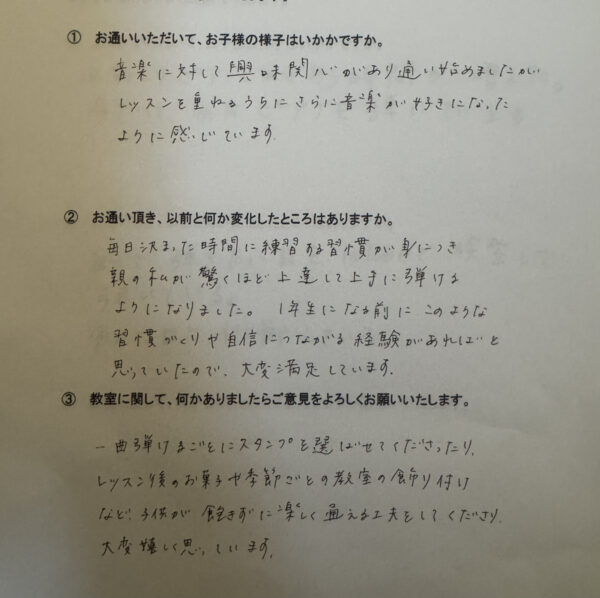 ① お通いいただいて、お子様の様子はいかかですか。
音楽に対して興味関心があり通い始めましたが
レッスンを重ねるうちにさらに音楽が好きになった
ように感じています。
② お通い頂き、以前と何か変化したところはありますか。
毎日決まった時間に練習する習慣が身につき
親の私が驚くほど上達して上手に弾ける
ようになりました。 1年生になる前にこのような
習慣づくりや自信につながる経験があればと
思っていたので、大変満足しています。
③ 教室に関して、何かありましたらご意見をよろしくお願いいたします。
一曲弾けるごとにスタンプを選ばせてくださったり、
レッスン後のお菓子や季節ごとの教室の飾り付け
など、子供が飽きずに楽しく通える工夫をしてくださり、
大変嬉しく思っています。